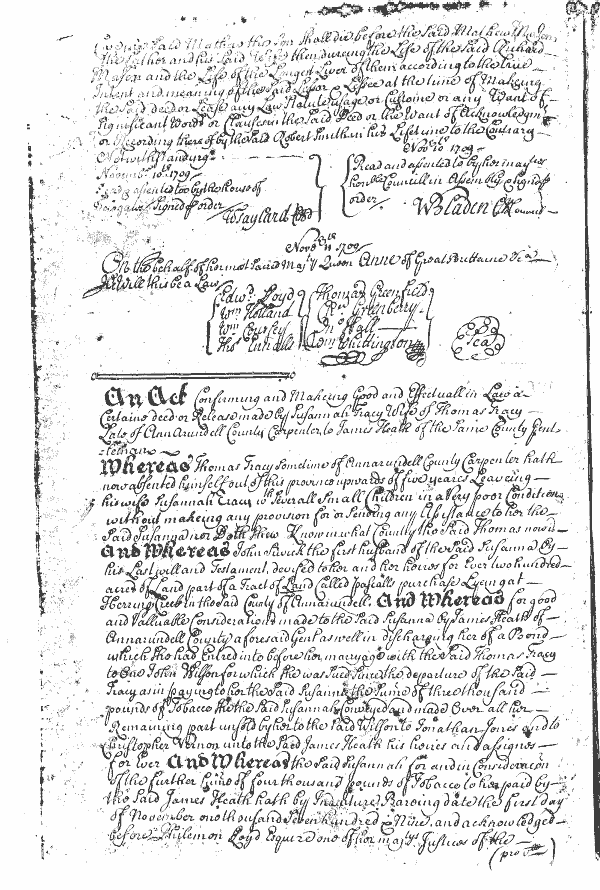 Said Mathew the Son Shall die before the Said Mathew Mason
the father and his Said Wife then dureing the Life of the Said Richard
Mason and the Life of the Longest Liver of them according to the true
Intent and meaning of the Said Lessor & Lessee at the time of Makeing
the Said deed or Lease any Law Statute Usage or Custome or any Want of
Significant Words or Clauses in the Said Deed or the Want of Acknowledging
or Recording thereof by the Said Robert Smith in his Life time to the Contrary
Notwithstanding
Novem.r 10th 1709
Read & assented to by the house of
Delegates Signed p order
WTaylard
Nov.r 10th 1709
Read and assented to by her majties
honble Councill in Assembly Signed p
order
WBladen
Novr 11th 1709
On the behalf of her most Sacred Maj.ty Queen Anne of Great Brittaine &ca
I Will this be a Law
Edwd Lloyd
Wm Holland
Wm Coursey
Tho: Ennalls
Thomas Greenfield
Cha: Greenberry
Jno Hall
Tom Whettington
Seal
An Act Confirming and Makeing Good and Effectuall in Law a
Certaine deed or Release made by Susannah Tracy Wife of Thomas Tracy
Late of Ann Arundell County Carpenter, to James Heath of the same County Gent
Whereas Thomas Tracy Sometime of Annarundell County Carpenter hath
now absented himself out of this province upwards of five yeares Leaveing
his wife Susannah Tracy wth Severall Small Children in a Very poor Condition
without makeing any provision for or Sending any Assistance to her the
Said Susanna nor Doth Shew Know in what County the Said Thomas now is
And Whereas John the first husband of the Said Susanna By
his Last will and Testament, devised to her and her heires for Ever two hundred
acres of Land part of a Tract of Land Called purchase Lyeing at
Herring Creek in the Said County of Annarundell, And Whereas for good
and Valuable Considerations made to the Said Susanna by James Heath of
Annarundell County aforesaid Gent as well in dischargeing her of a Bond
which Shee had Entred into before her marryage with the Said Thomas Tracy
to One John Wilson for which Shee was Sued Since the departure of the Said
Tracy as in paying to her the Said Susanna the Sume of three thousand
pounds of Tobacco the Said Susannah Conveyed and made Over all her
Remaining part unsold by her to the Said Wilson to Jonathan Jones and to
Christopher Vernon unto the Said James Heath his heires and assignes
for Ever And Whereas the Said Susannah for and in Consideration
of the further Sume of four thousand pounds of Tobacco to her paid by
the Said James Heath hath by Indenture Bareing date the first day
of November one thousand Seven hundred & Nine, and acknowledged
before Philemon Lloyd Esquire one of her majtys Justices of the
(pro